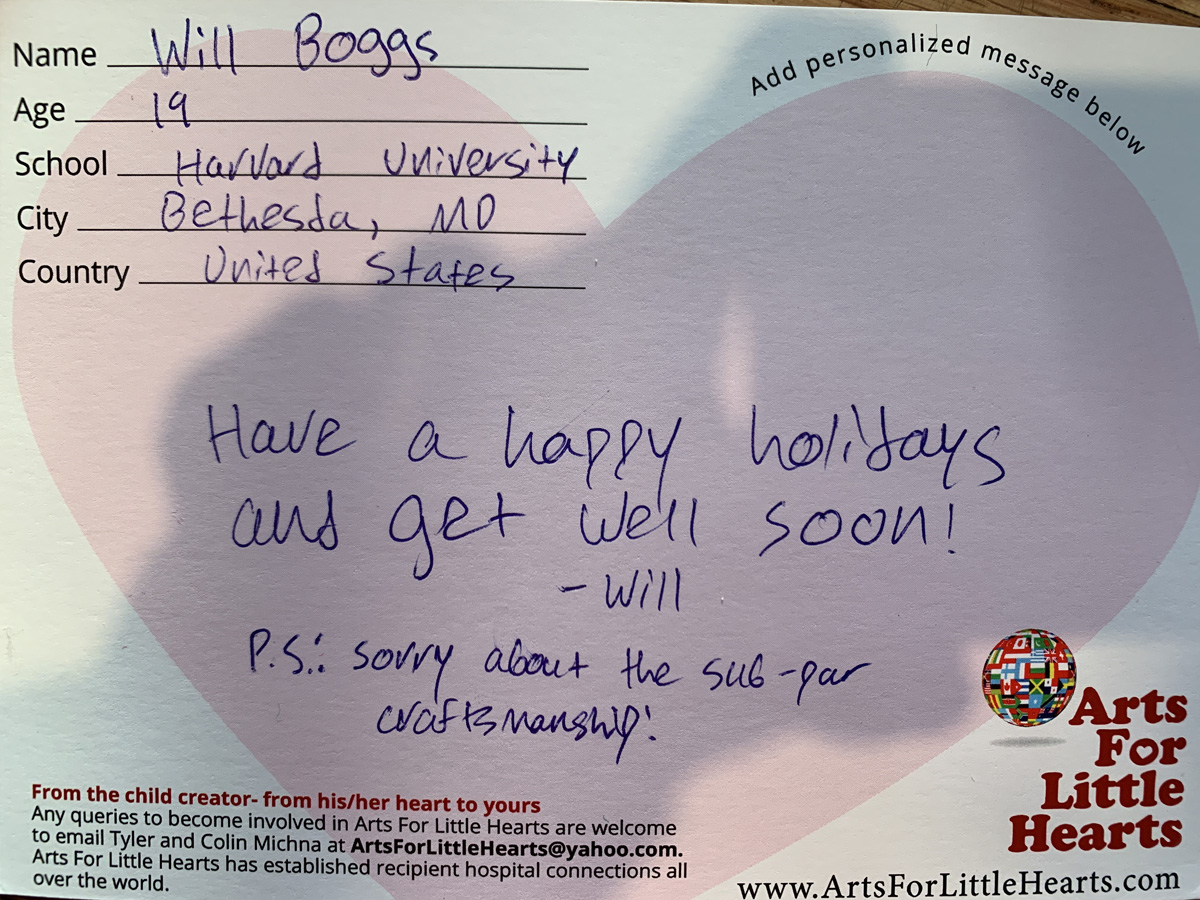 Name Will Boggs
Age 19
School Harvard University
City Bethesda, MD
Country United States
Add personalized message below
Have a happy holidays
and get well soon!
- Will
P.S.: sorry about the sub-par
craftsmanship!
From the child creator- from his/her heart to yours
Any queries to become involved in Arts For Little Hearts are welcome
to email Tyler and Colin Michna at ArtsForLittleHearts@yahoo.com.
Arts For Little Hearts has established recipient hospital connections all
over the world.
Arts
For
Little
Hearts
www.ArtsForLittleHearts.com